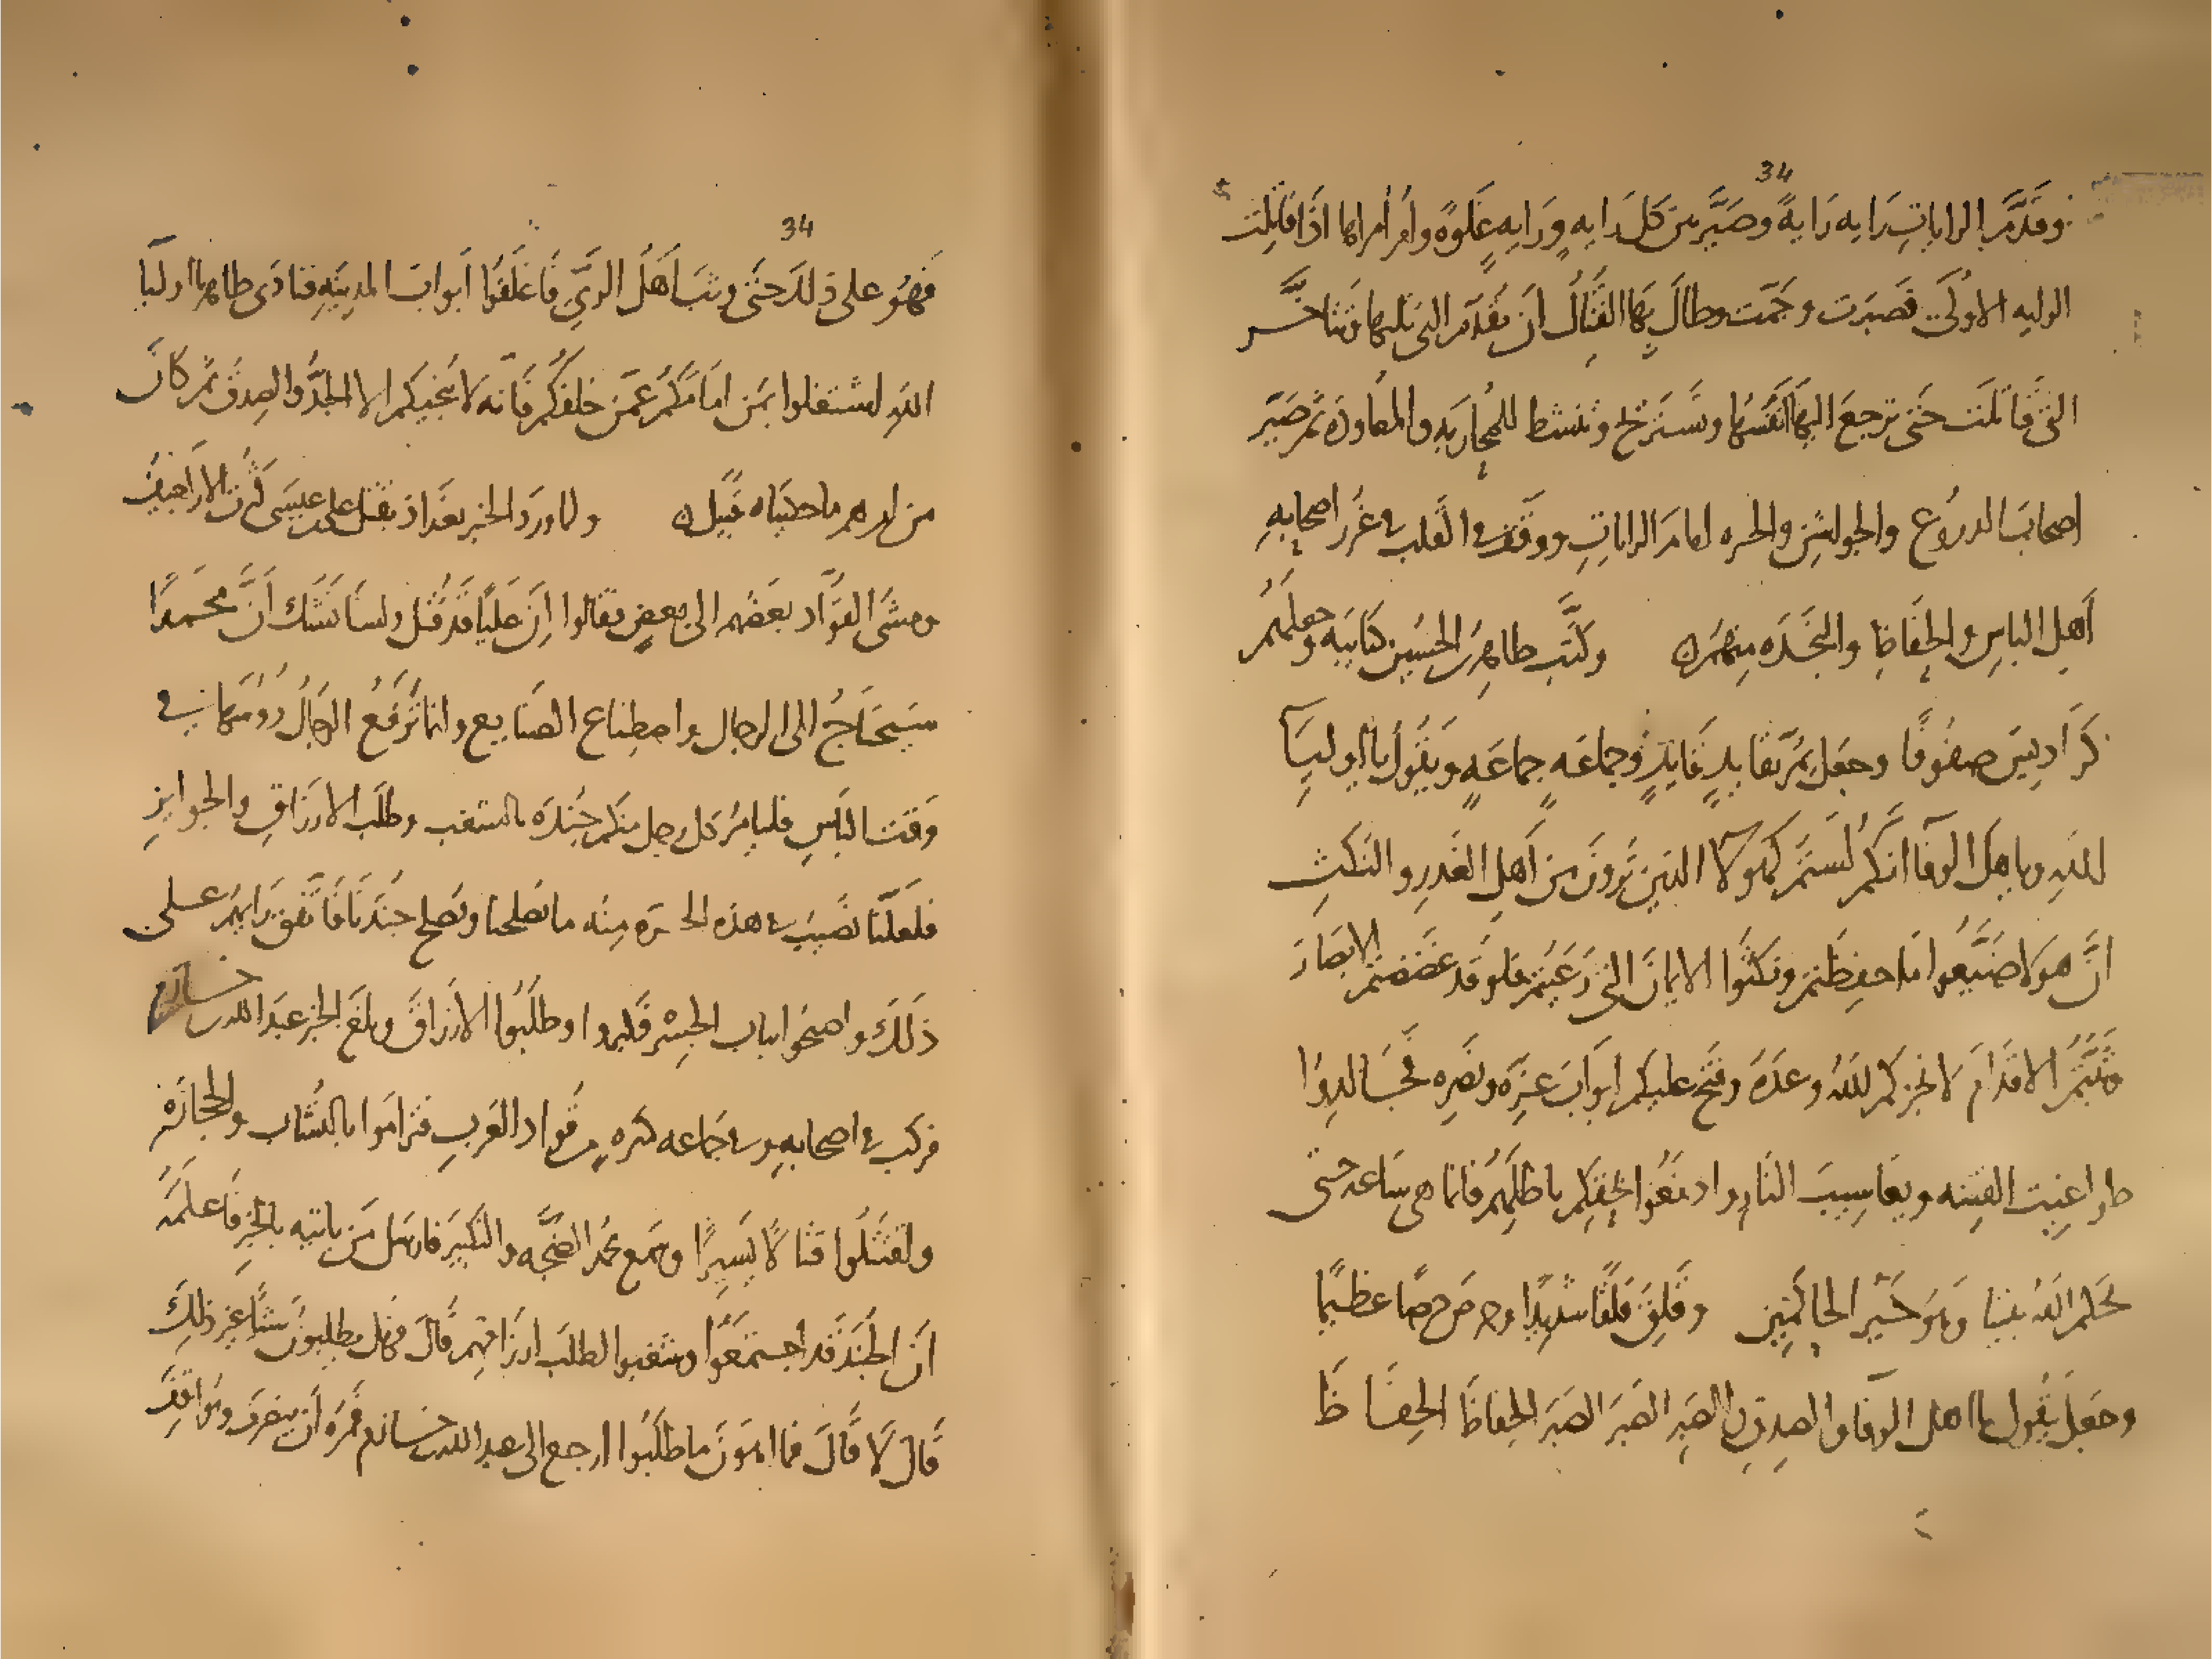 34
وقدّم الرايات راية راية وصيّر بين كل راية وراية غلوة وامر امراها اذا قاتلت
الرايه الاولى فصبرت وحمت وطال بها القتال ان تقدم التي تليها وتتاخر
التي قاتلت حتى ترجع اليها انفسها وتستريح وتنشط للمحاربه والمعاودة ثم صير
اصحاب الدروع والجواشن والخوذ امام الرايات ووقف في القلب في غرر اصحابه
اهل الباس والحفاظ والنجده منهم وكتب طاهر بن الحسين كتايبه وجعلهم
كراديس صفوفا وجعل يمر بقايد قايد وجماعه جماعه ويقول يا اوليا
الله ويا اهل الوفا انكم لستم كهولا الذين ترون من اهل الغدر والنكث
ان هولا ضيعوا ما حفظتم ونكثوا الايمان التي رعيتم فلو قد غضضتم الابصار
وثبتم الاقدام لانجزكم الله وعده وفتح عليكم ابواب عزه ونصره فجالدوا
طواغيت الفتنه ويعاسيب النار وادفعوا بحقكم باطلهم فانما هي ساعه حتى
يحكم الله بيننا وهو خير الحاكمين وقلق قلقا شديدا وحرص حرصا عظيما
وجعل يقول يا اهل الوفا والصدق الصبر الصبر الصبر الحفاظ الحفاظ
34
فهو على ذلك حتى وثب اهل الري فاغلقوا ابواب المدينه فنادى طاهر يا اوليا
الله اشتغلوا بمن امامكم عمن خلفكم فانه لا ينجيكم الا الجد والصدق ثم كان
من امرهم ما حكيناه قبل ولما ورد الخبر بغداذ بقتل علي بن عيسى كثرت الاراجيف
ومشى القواد بعضهم الى بعض فقالوا ان عليا قد قتل ولسنا نشك ان محمدا
سيحتاج الى الرجال واصطناع الصنايع وانما ترفع الرجال روسها في
وقت الباس فليامر كل رجل منكم جنده بالشغب وطلب الارزاق والجوايز
فلعلنا نصيب في هذه الحركة منه ما يصلحنا ويصلح جندنا فاتفق رايهم على
ذلك واصبحوا بباب الجسر فكبروا وطلبوا الارزاق وبلغ الخبر عبد الله بن خازم
فركب في اصحابه وفي جماعه كثيره من قواد العرب فتراموا بالنشاب والحجارة
واقتتلوا قتالا يسيرا وسمع محمد الضجه والتكبير فارسل من ياتيه بالخبر فاعلمه
ان الجند قد اجتمعوا وشغبوا لطلب ارزاقهم قال فهل يطلبون شيا غير ذلك
قال لا قال فما اهون ما طلبوا ارجع الى عبد الله بن خازم فمره ان ينصرف